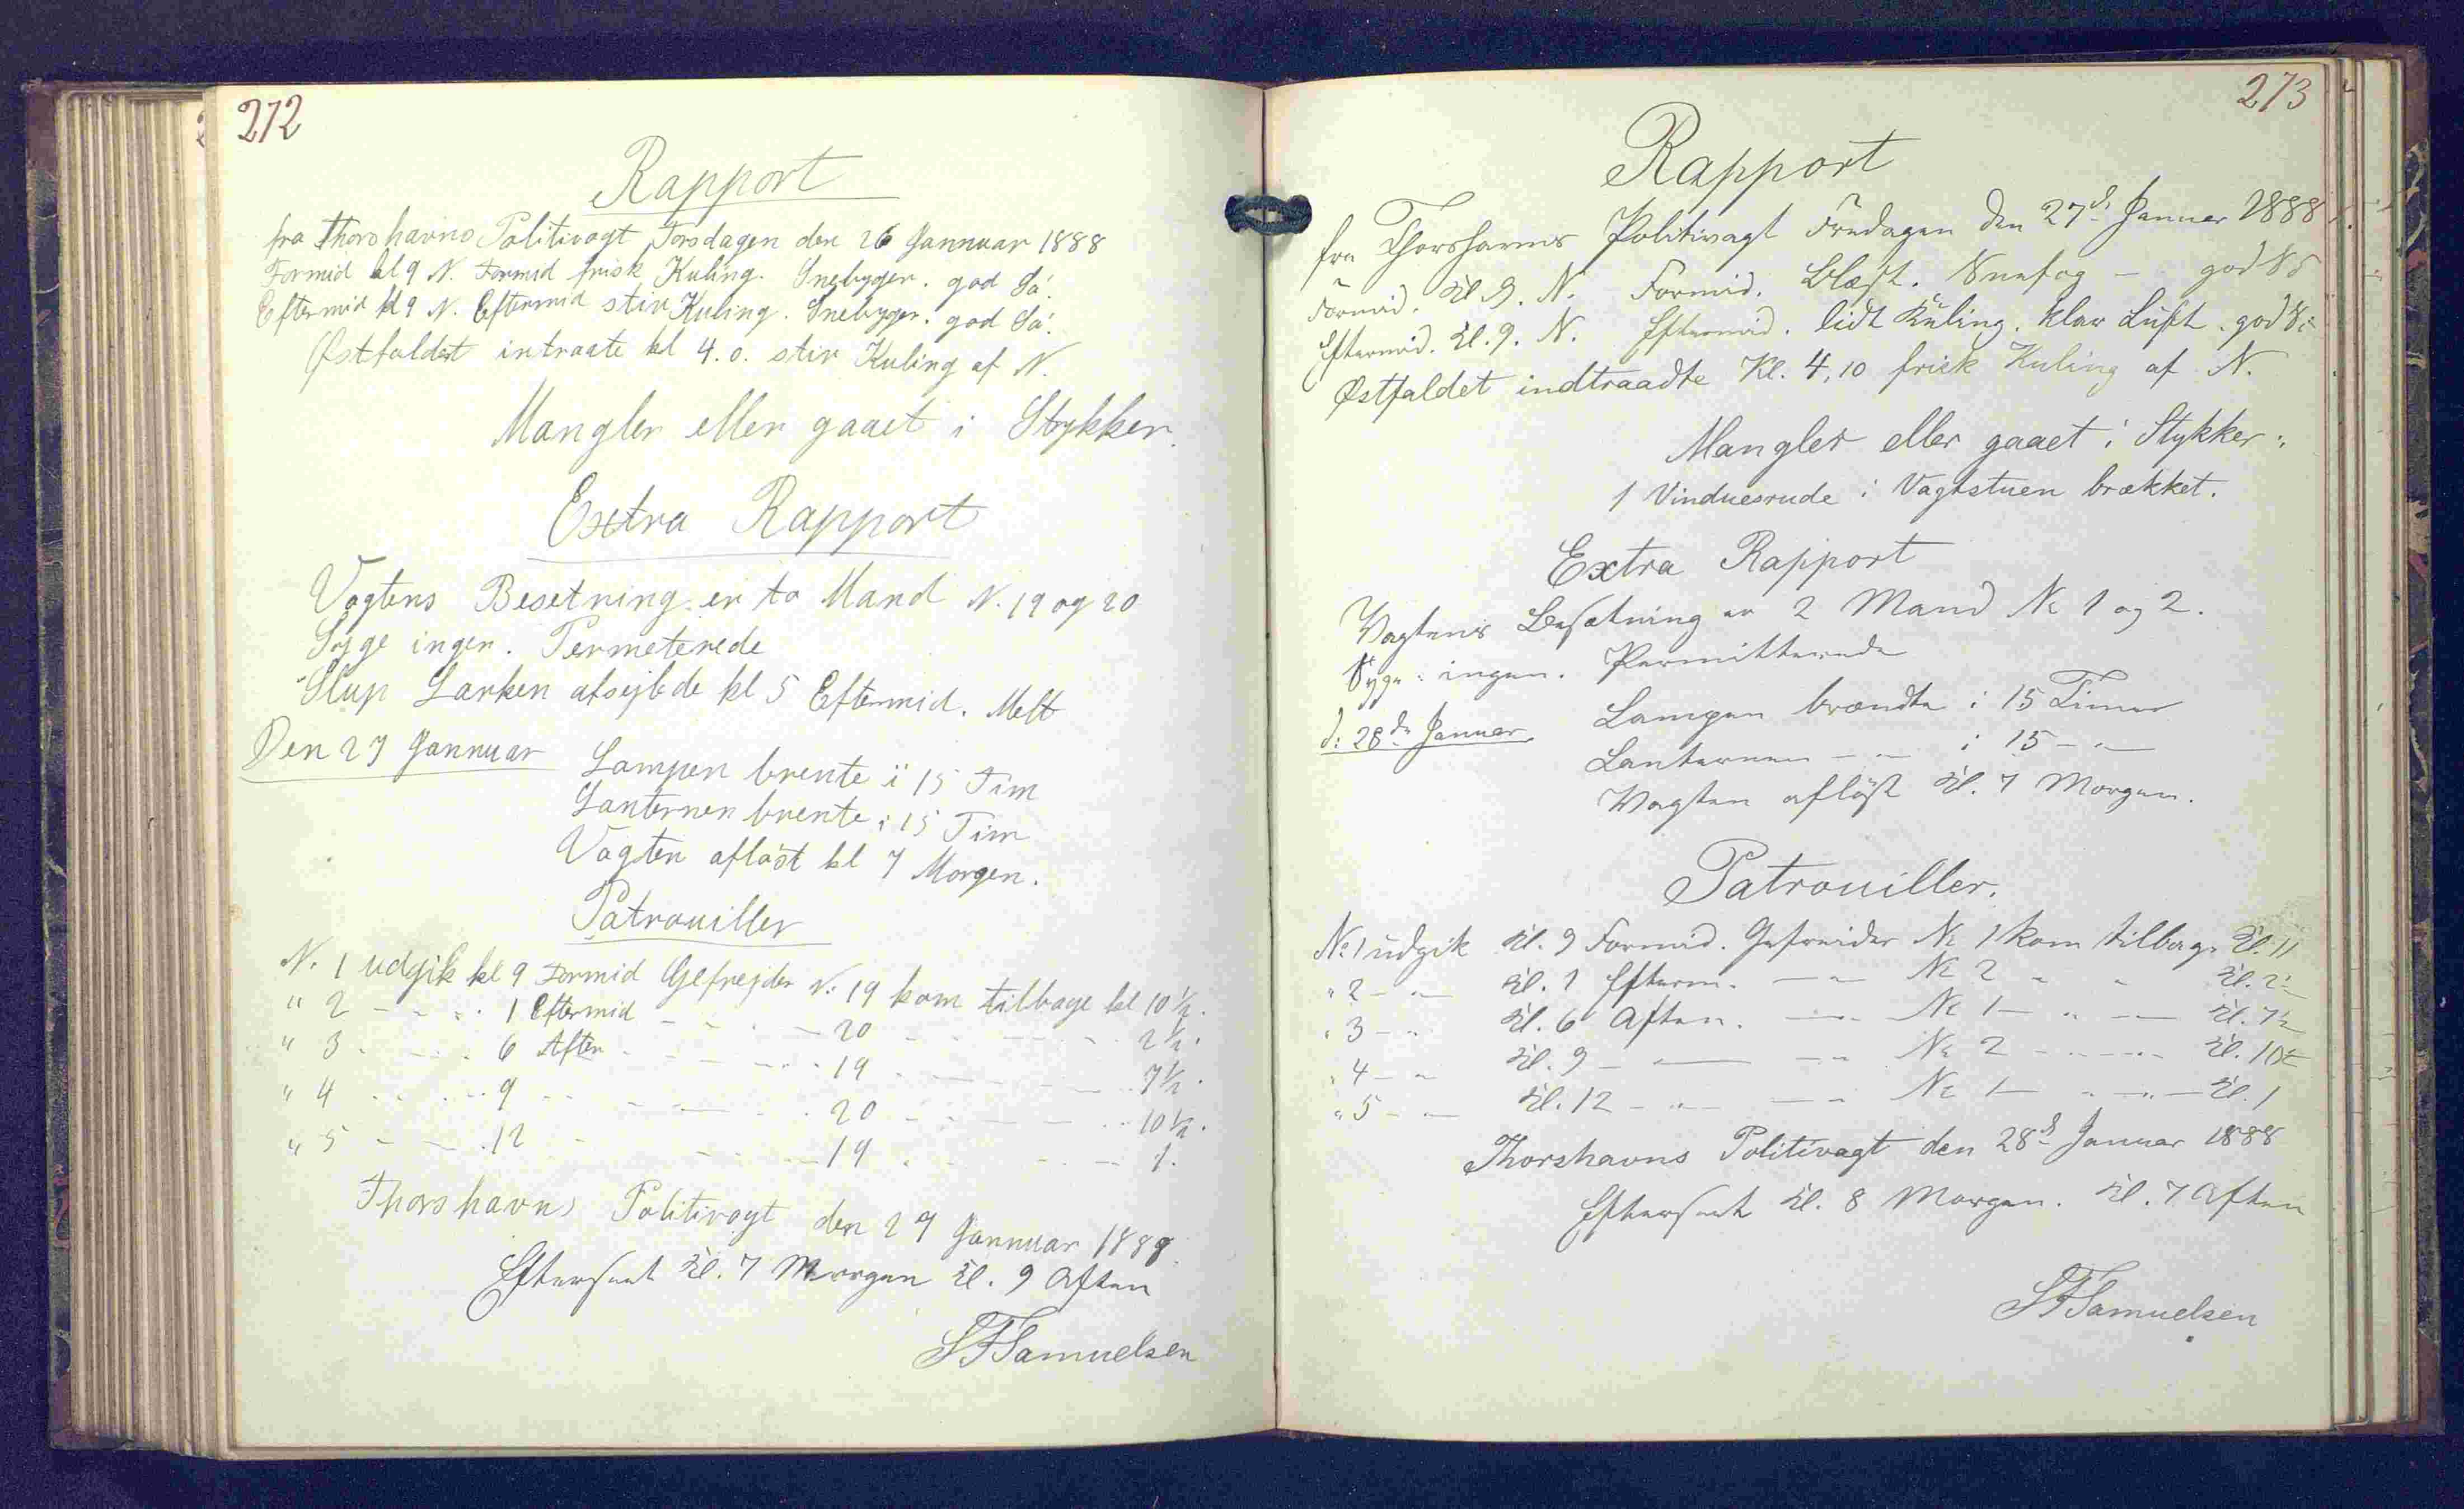 272
Rapport
fra Thorshavns Politivagt Torsdagen den 26 Jannuar 1888
Formid kl 9 N. Formid frisk Kuling. Snebyger. god Sø.
Eftermid kl 9 N. Eftermid stiv Kuling. Snebyger. god Sø.
Østfaldet intraate kl 4.0. stiv Kuling af N.
Mangler eller gaaet i Stykker.
Extra Rapport
Vagtens Besetning er to Mand N. 19 og 20
Syge ingen. Permeterede
Slup Larken afsejlede kl 5 Eftermid. Melt
Den 27 Jannuar Lampen brente i 15 Tim
Lanternen brente i 15 Tim
Vagten afløst kl 7 Morgen.
Patrouiller
N. 1 udgik kl 9 Formid Gefrejder N. 19 kom tilbage kl 10 1/2.
" 2 - - - 1 Eftermid - - - 20 - - - 2 1/2.
" 3 - - - 6 Aften - - - 19 - - - 7 1/2.
" 4 - - - 9 - - - 20 - - - 10 1/2.
" 5 - - - 12 - - - 19 - - - 1.
Thorshavns Politivagt den 27 Jannuar 1888
Efterseet Kl. 7 Morgen Kl. 9 Aften
SFSamuelsen
273
Rapport
fra Thorshavns Politivagt Fredagen den 27de Januar 1888.
Formid. Kl 9. N. Formid. Blæst. Snefog - god Sø
Eftermid. Kl. 9. N. Eftermid. lidt Kuling. klar Luft. god Sø
Østfaldet indtraadte Kl. 4,10 frisk Kuling af N.
Mangler eller gaaet i Stykker:
1 Vinduesrude i Vagtstuen brækket.
Extra Rapport
Vagtens Besætning er 2 Mand No 1 og 2.
Syge: ingen. Permitterede
d: 28de Januar. Lampen brændte i 15 Timer
Lanternen - " - i 15 - " -
Vagten afløst Kl. 7 Morgen.
Patrouiller.
No 1 udgik Kl. 9 Formid. Gefreider No 1 kom tilbage Kl. 11
" 2 - " - Kl. 1 Efterm. - " - No 2 " " Kl. 2 1/2
" 3 - " Kl. 6 Aften. - " - No 1 - " - Kl. 7 1/2
" 4 - " Kl. 9 - " - No 2 - " - Kl. 10 1/2
" 5 - " - Kl. 12 - " - No 1 - " - Kl. 1
Thorshavns Politivagt den 28de Januar 1888
Efterseet Kl. 8 Morgen. Kl. 7 Aften
SFSamuelsen